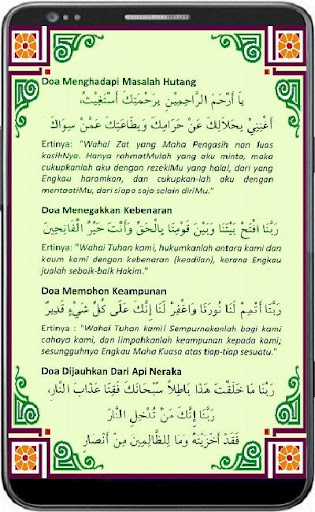 Doa Menghadapi Masalah Hutang
يَا أَرْحَمَ الرَّاحِمِيْنَ بِرَحْمَتِكَ أَسْتَغِيْثُ،
أَغْنِنِيْ بِحَلَالِكَ عَنْ حَرَامِكَ وَبِطَاعَتِكَ عَمَّنْ سِوَاكَ
Ertinya: "Wahai Zat yang Maha Pengasih nan luas
kasihNya. Hanya rahmatMulah yang aku minta, maka
cukupkanlah aku dengan rezekiMu yang halal, dari yang
Engkau haramkan, dan cukupkan-lah aku dengan
mentaatiMu, dari siapa saja selain diriMu."
Doa Menegakkan Kebenaran
رَبَّنَا افْتَحْ بَيْنَنَا وَبَيْنَ قَوْمِنَا بِالْحَقِّ وَأَنتَ خَيْرُ الْفَاتِحِينَ
Ertinya: "Wahai Tuhan kami, hukumkanlah antara kami dan
kaum kami dengan kebenaran (keadilan), kerana Engkau
jualah sebaik-baik Hakim."
Doa Memohon Keampunan
رَبَّنَا أَتْمِمْ لَنَا نُورَنَا وَاغْفِرْ لَنَا إِنَّكَ عَلَى كُلِّ شَيْءٍ قَدِيرٌ
Ertinya : "Wahai Tuhan kami! Sempurnakanlah bagi kami
cahaya kami, dan limpahkanlah keampunan kepada kami;
sesungguhnya Engkau Maha Kuasa atas tiap-tiap sesuatu."
Doa Dijauhkan Dari Api Neraka
رَبَّنَا مَا خَلَقْتَ هَذَا بَاطِلاً سُبْحَانَكَ فَقِنَا عَذَابَ النَّارِ،
رَبَّنَا إِنَّكَ مَنْ تُدْخِلِ النَّارَ
فَقَدْ أَخْزَيْتَهُ وَمَا لِلظَّالِمِيْنَ مِنْ أَنْصَارٍ